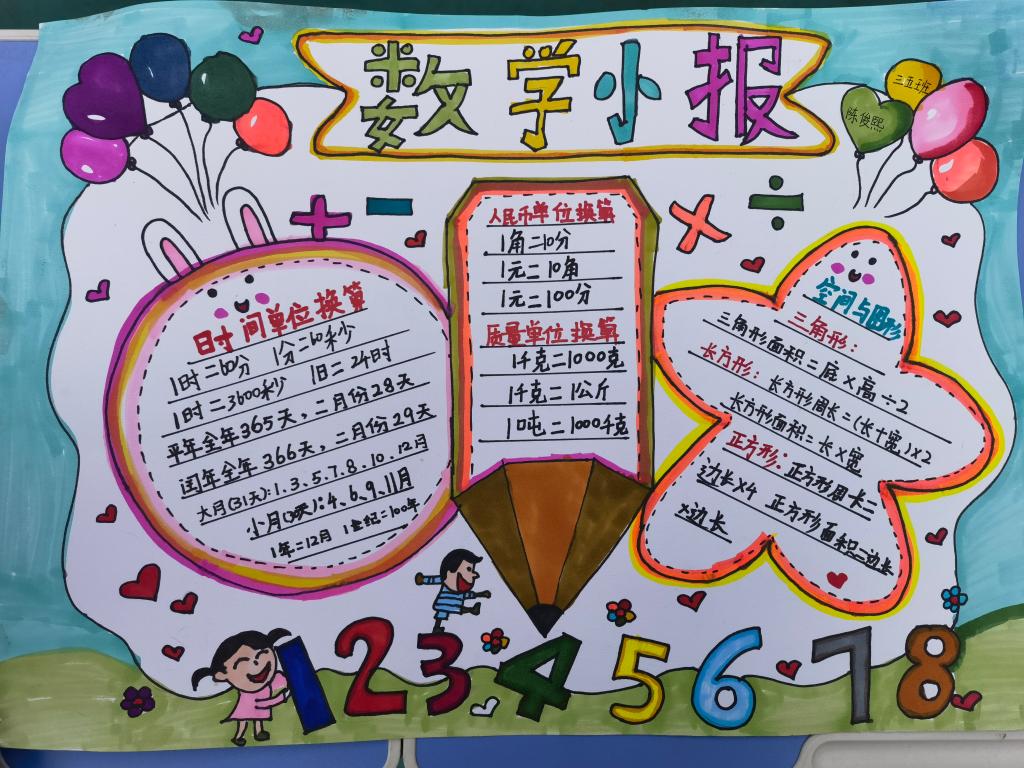 数学小报
三五班
陈俊熙
+ - × ÷
日时间单位换算
1时=60分 1分=60秒
1时=3600秒 1日=24时
平年全年365天，二月份28天
闰年全年366天，二月份29天
大月(31天):1.3.5.7.8.10.12月
小月(30天):4、6、9、11月
1年=12月 1世纪=100年
人民币单位换算
1角=10分
1元=10角
1元=100分
质量单位换算
1千克=1000克
1千克=1公斤
1吨=1000千克
空间与图形
三角形：
三角形面积=底×高÷2
长方形：长方形周长=(长+宽)×2
长方形面积=长×宽
正方形：正方形周长=
边长×4 正方形面积=边长
×边长
1 2 3 4 5 6 7 8